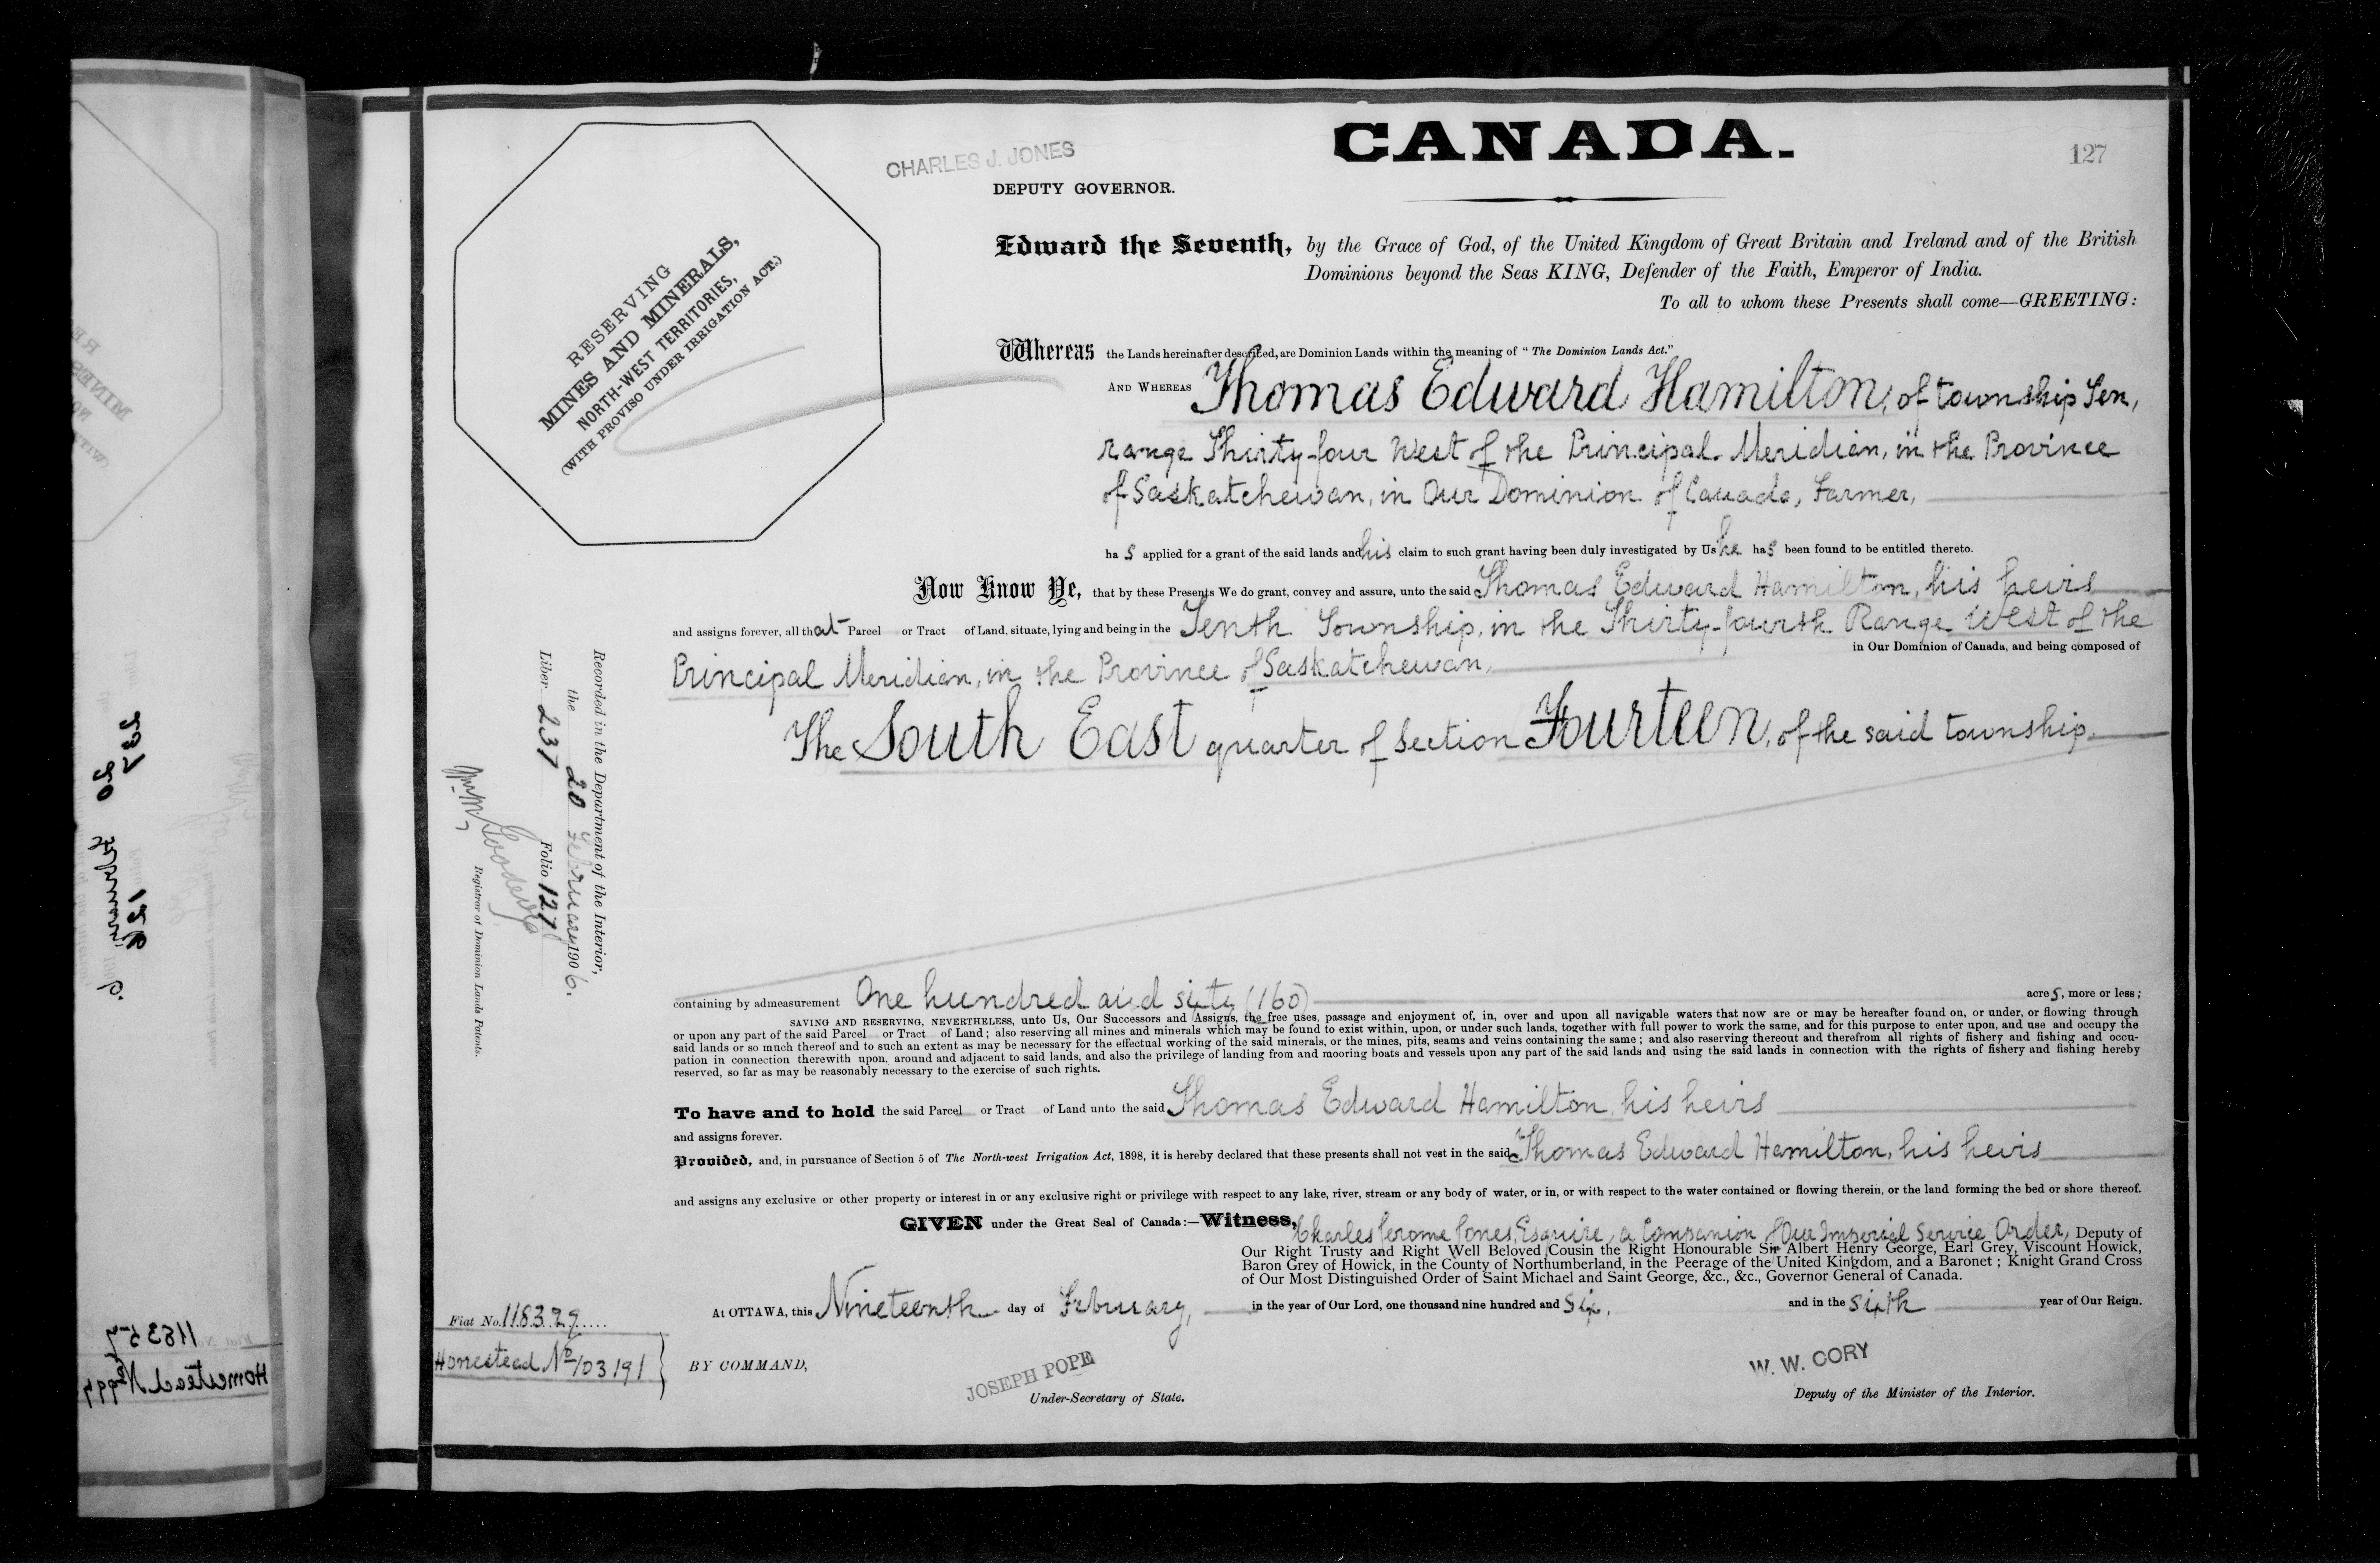 CANADA.
127
CHARLES J. JONES
DEPUTY GOVERNOR.
RESERVING
MINES AND MINERALS,
NORTH-WEST TERRITORIES,
(WITH PROVISO UNDER IRRIGATION ACT.)
Edward the Seventh, by the Grace of God, of the United Kingdom of Great Britain and Ireland and of the British
Dominions beyond the Seas KING, Defender of the Faith, Emperor of India.
To all to whom these Presents shall come—GREETING:
Whereas the Lands hereinafter described, are Dominion Lands within the meaning of "The Dominion Lands Act."
AND WHEREAS Thomas Edward Hamilton, of township Ten,
range Thirty-four West of the Principal Meridian, in the Province
of Saskatchewan, in Our Dominion of Canada, Farmer,
ha s applied for a grant of the said lands and his claim to such grant having been duly investigated by Us he has been found to be entitled thereto.
Now Know Ye, that by these Presents We do grant, convey and assure, unto the said Thomas Edward Hamilton, his heirs
and assigns forever, all that Parcel or Tract of Land, situate, lying and being in the Tenth Township, in the Thirty-fourth Range West of the
Principal Meridian, in the Province of Saskatchewan, in Our Dominion of Canada, and being composed of
The South East quarter of Section Fourteen, of the said township.
Recorded in the Department of the Interior,
the 20 February 1906.
Liber 237 Folio 127
Registrar of Dominion Lands Patents.
containing by admeasurement One hundred and sixty (160) acres, more or less;
SAVING AND RESERVING, NEVERTHELESS, unto Us, Our Successors and Assigns, the free uses, passage and enjoyment of, in, over and upon all navigable waters that now are or may be hereafter found on, or under, or flowing through
or upon any part of the said Parcel or Tract of Land; also reserving all mines and minerals which may be found to exist within, upon, or under such lands, together with full power to work the same, and for this purpose to enter upon, and use and occupy the
said lands or so much thereof and to such an extent as may be necessary for the effectual working of the said minerals, or the mines, pits, seams and veins containing the same; and also reserving thereout and therefrom all rights of fishery and fishing and occu-
pation in connection therewith upon, around and adjacent to said lands, and also the privilege of landing from and mooring boats and vessels upon any part of the said lands and using the said lands in connection with the rights of fishery and fishing hereby
reserved, so far as may be reasonably necessary to the exercise of such rights.
To have and to hold the said Parcel or Tract of Land unto the said Thomas Edward Hamilton, his heirs
and assigns forever.
Provided, and, in pursuance of Section 5 of The North-west Irrigation Act, 1898, it is hereby declared that these presents shall not vest in the said Thomas Edward Hamilton, his heirs
and assigns any exclusive or other property or interest in or any exclusive right or privilege with respect to any lake, river, stream or any body of water, or in, or with respect to the water contained or flowing therein, or the land forming the bed or shore thereof.
GIVEN under the Great Seal of Canada:—Witness, Charles Jerome Jones, Esquire, a Companion of Our Imperial Service Order, Deputy of
Our Right Trusty and Right Well Beloved Cousin the Right Honourable Sir Albert Henry George, Earl Grey, Viscount Howick,
Baron Grey of Howick, in the County of Northumberland, in the Peerage of the United Kingdom, and a Baronet; Knight Grand Cross
of Our Most Distinguished Order of Saint Michael and Saint George, &c., &c., Governor General of Canada.
At OTTAWA, this Nineteenth day of February, in the year of Our Lord, one thousand nine hundred and Six, and in the sixth year of Our Reign.
Fiat No. 118329
Homestead No 103191
BY COMMAND,
JOSEPH POPE
Under-Secretary of State.
W. W. CORY
Deputy of the Minister of the Interior.